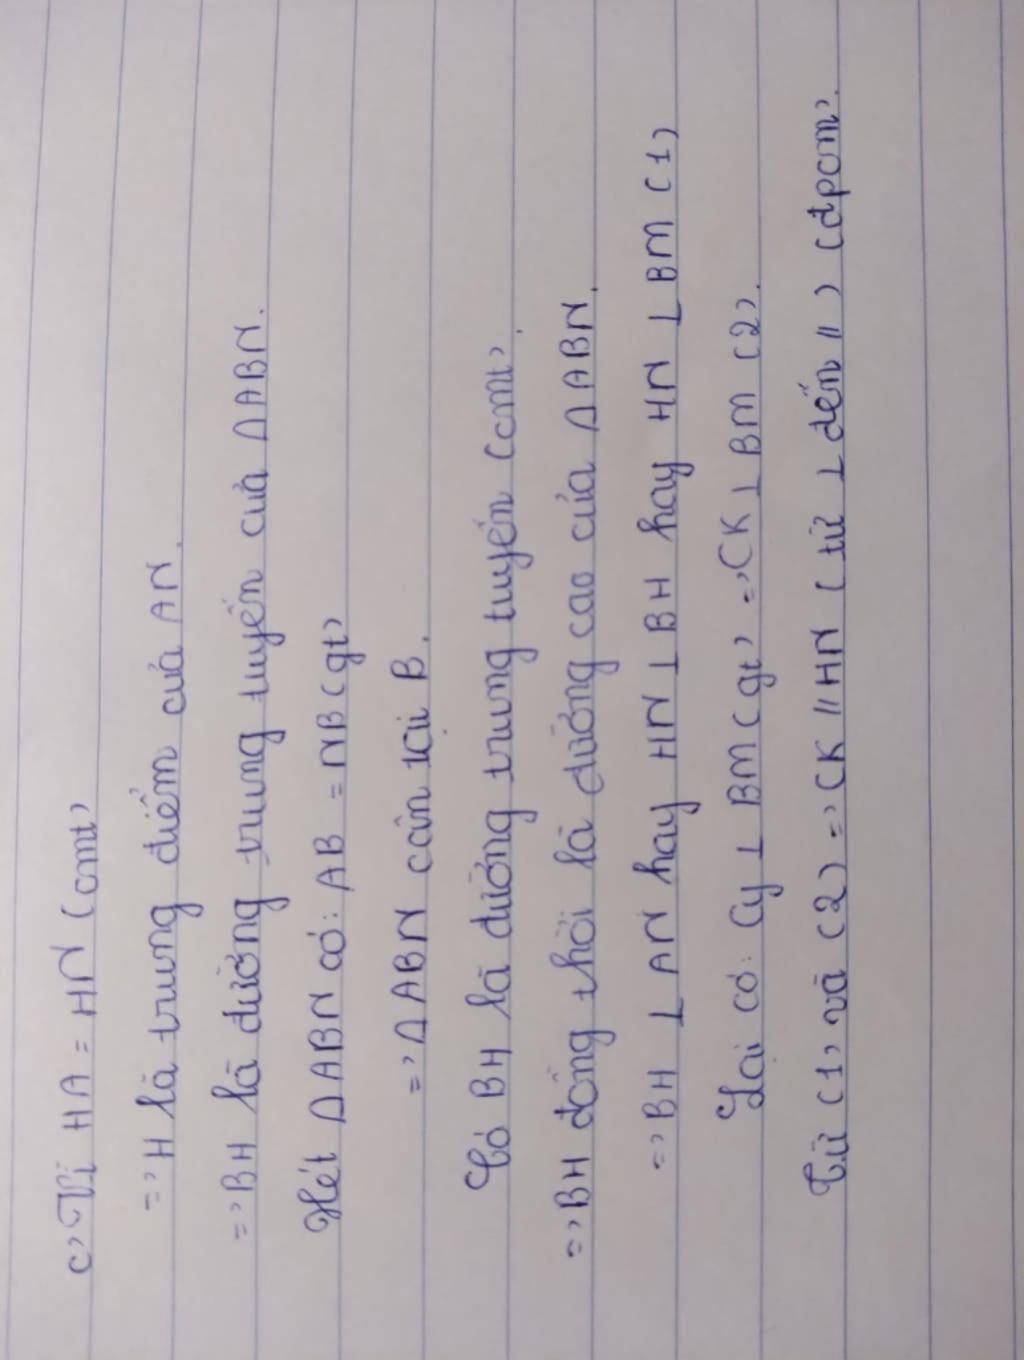 c, Vì HA = HN (cmt)
=> H là trung điểm của AN.
=> BH là đường trung tuyến của ΔABN.
Xét ΔABN có: AB = NB (gt)
=> ΔABN cân tại B.
Có BH là đường trung tuyến (cmt).
=> BH đồng thời là đường cao của ΔABN.
=> BH ⊥ AN hay HN ⊥ BH hay HN ⊥ BM (1)
Lại có: Cy ⊥ BM (gt) => CK ⊥ BM (2).
Từ (1) và (2) => CK // HN (từ ⊥ đến //) (đpcm).